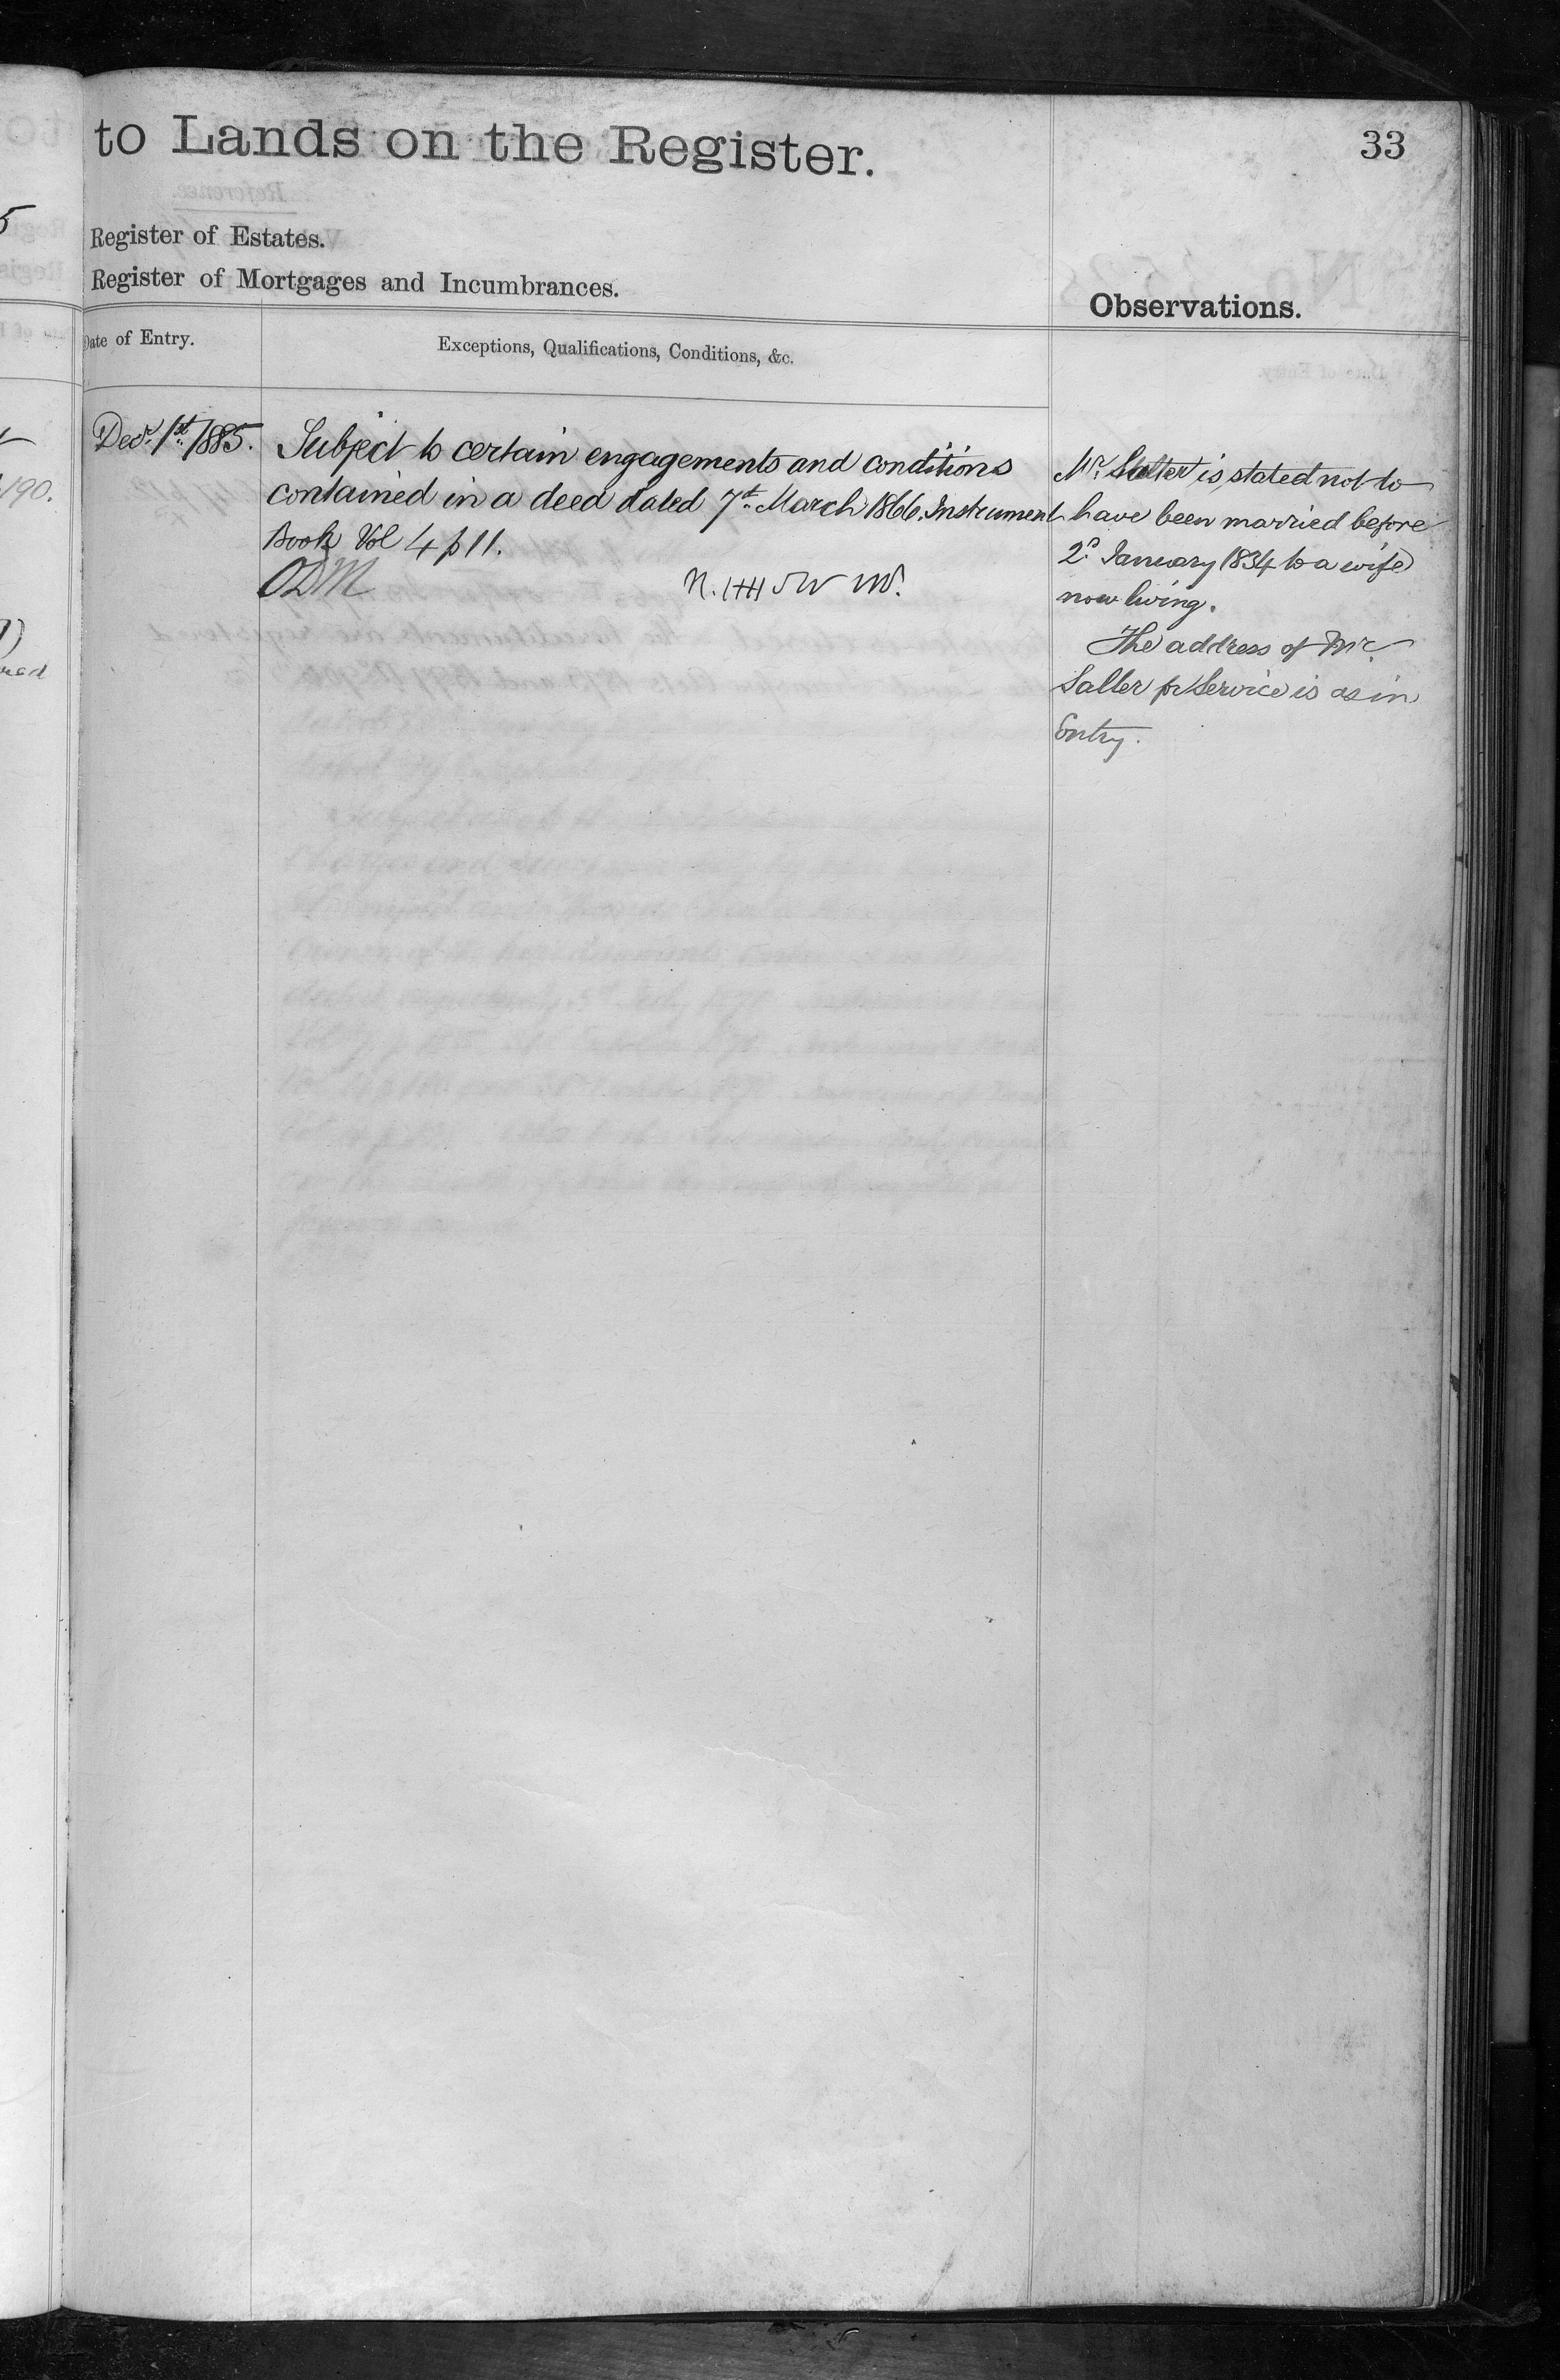 to Lands on the Register.
33
Register of Estates.
Register of Mortgages and Incumbrances.
Observations.
Date of Entry.
Exceptions, Qualifications, Conditions, &c.
Decr. 1st. 1885.
Subject to certain engagements and conditions
contained in a deed dated 7th. March 1866. Instrument
Book Vol 4 p 11.
ODM
Mr. Salter is stated not to
have been married before
2d. January 1834 to a wife
now living.
The address of Mr.
Salter for Service is as in
Entry.
190.